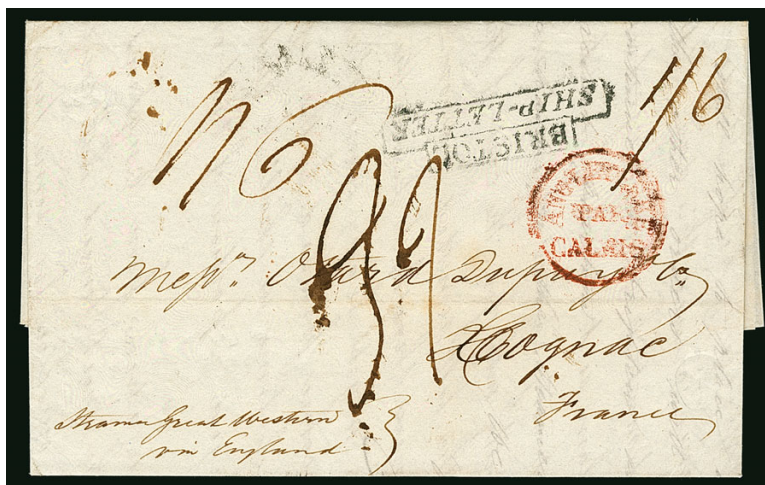 1/6
SHIP-LETTER
BRISTOL
ANGLETERRE
PAR
CALAIS
Messrs. Otard Dupuy & Co.
Cognac
France
Steamer Great Western
via England